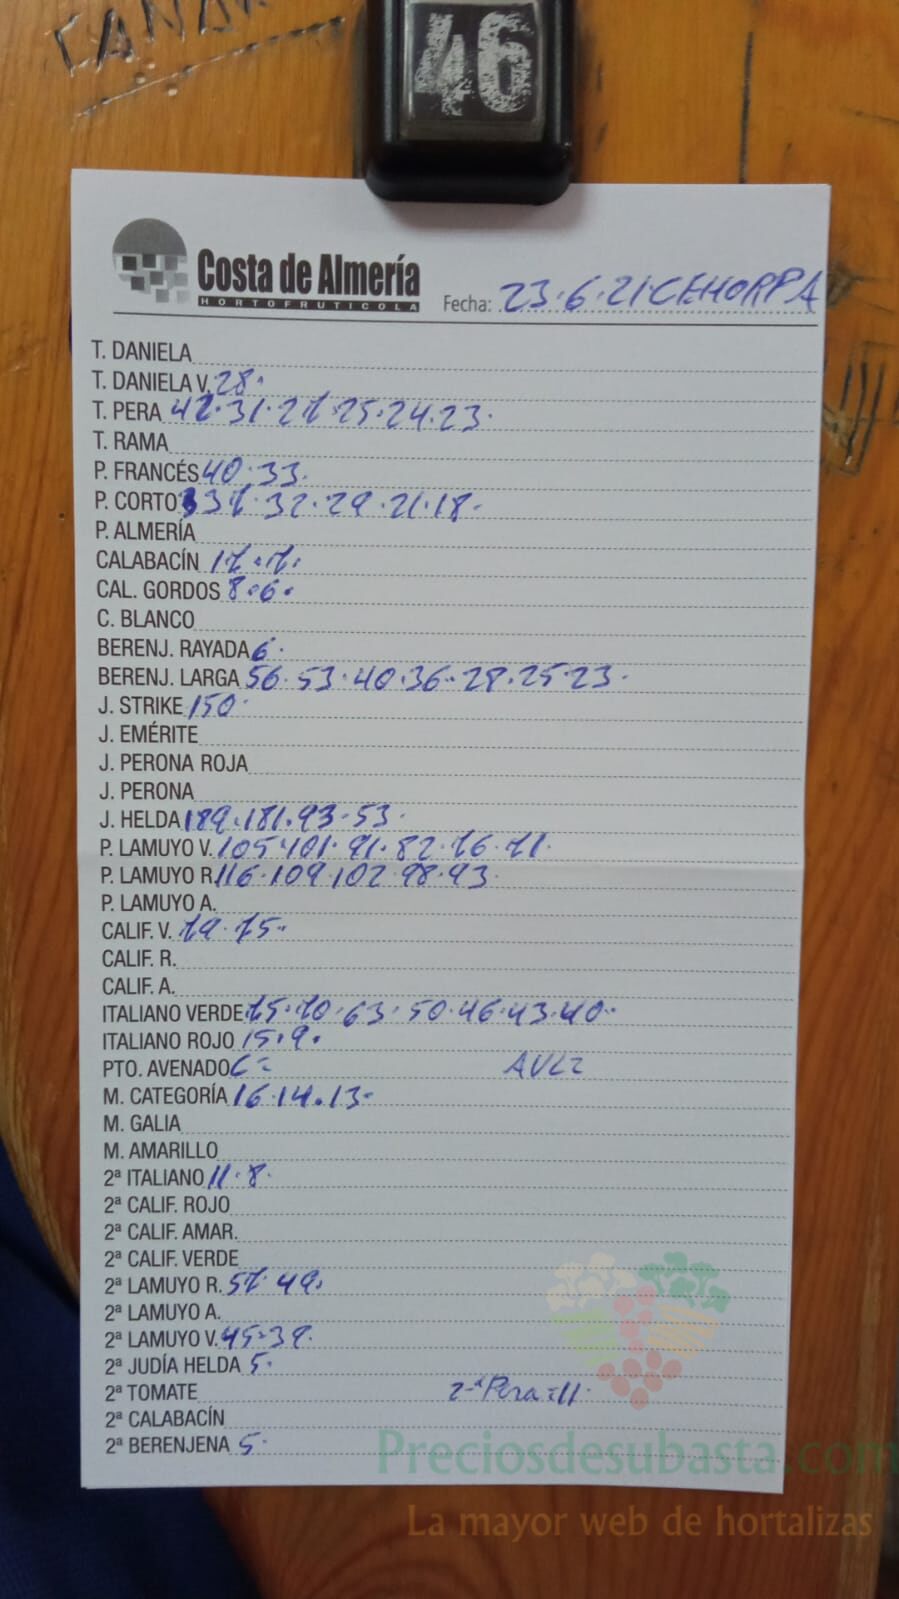 46
Costa de Almería
HORTOFRUTICOLA
Fecha: 23.6.21 CEHORPA
T. DANIELA
T. DANIELA V. 28.
T. PERA 42.31.27.25.24.23.
T. RAMA
P. FRANCÉS 40.33.
P. CORTO 37.32.29.21.18.
P. ALMERÍA
CALABACÍN 17.7.
CAL. GORDOS 8.6.
C. BLANCO
BERENJ. RAYADA 6.
BERENJ. LARGA 56.53.40.36.28.25.23.
J. STRIKE 150.
J. EMÉRITE
J. PERONA ROJA
J. PERONA
J. HELDA 189.181.93.53.
P. LAMUYO V. 105.101.91.82.76.71.
P. LAMUYO R. 116.109.102.98.93.
P. LAMUYO A.
CALIF. V. 79.75.
CALIF. R.
CALIF. A.
ITALIANO VERDE 75.70.63.50.46.43.40.
ITALIANO ROJO 15.9.
PTO. AVENADO
M. CATEGORÍA 16.14.13.
M. GALIA
M. AMARILLO
2ª ITALIANO 11.8.
2ª CALIF. ROJO
2ª CALIF. AMAR.
2ª CALIF. VERDE
2ª LAMUYO R. 57.49.
2ª LAMUYO A.
2ª LAMUYO V. 45.39.
2ª JUDÍA HELDA 5.
2ª TOMATE 2-ª Pera = 11.
2ª CALABACÍN
2ª BERENJENA 5.
Preciosdesubasta.com
La mayor web de hortalizas